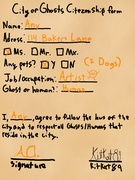 City of Ghosts Citizenship form
Name: Any
Adress: 114 Bakers Lane
Ms. Mr. Mx.
Any pets? Y N (2 Dogs)
Job/occupation: Artist
Ghost or human?: Human
I, Any, agree to follow the laws of the
city and to respect all Ghosts/Humans that
reside in the city.
Signature
KitKat89